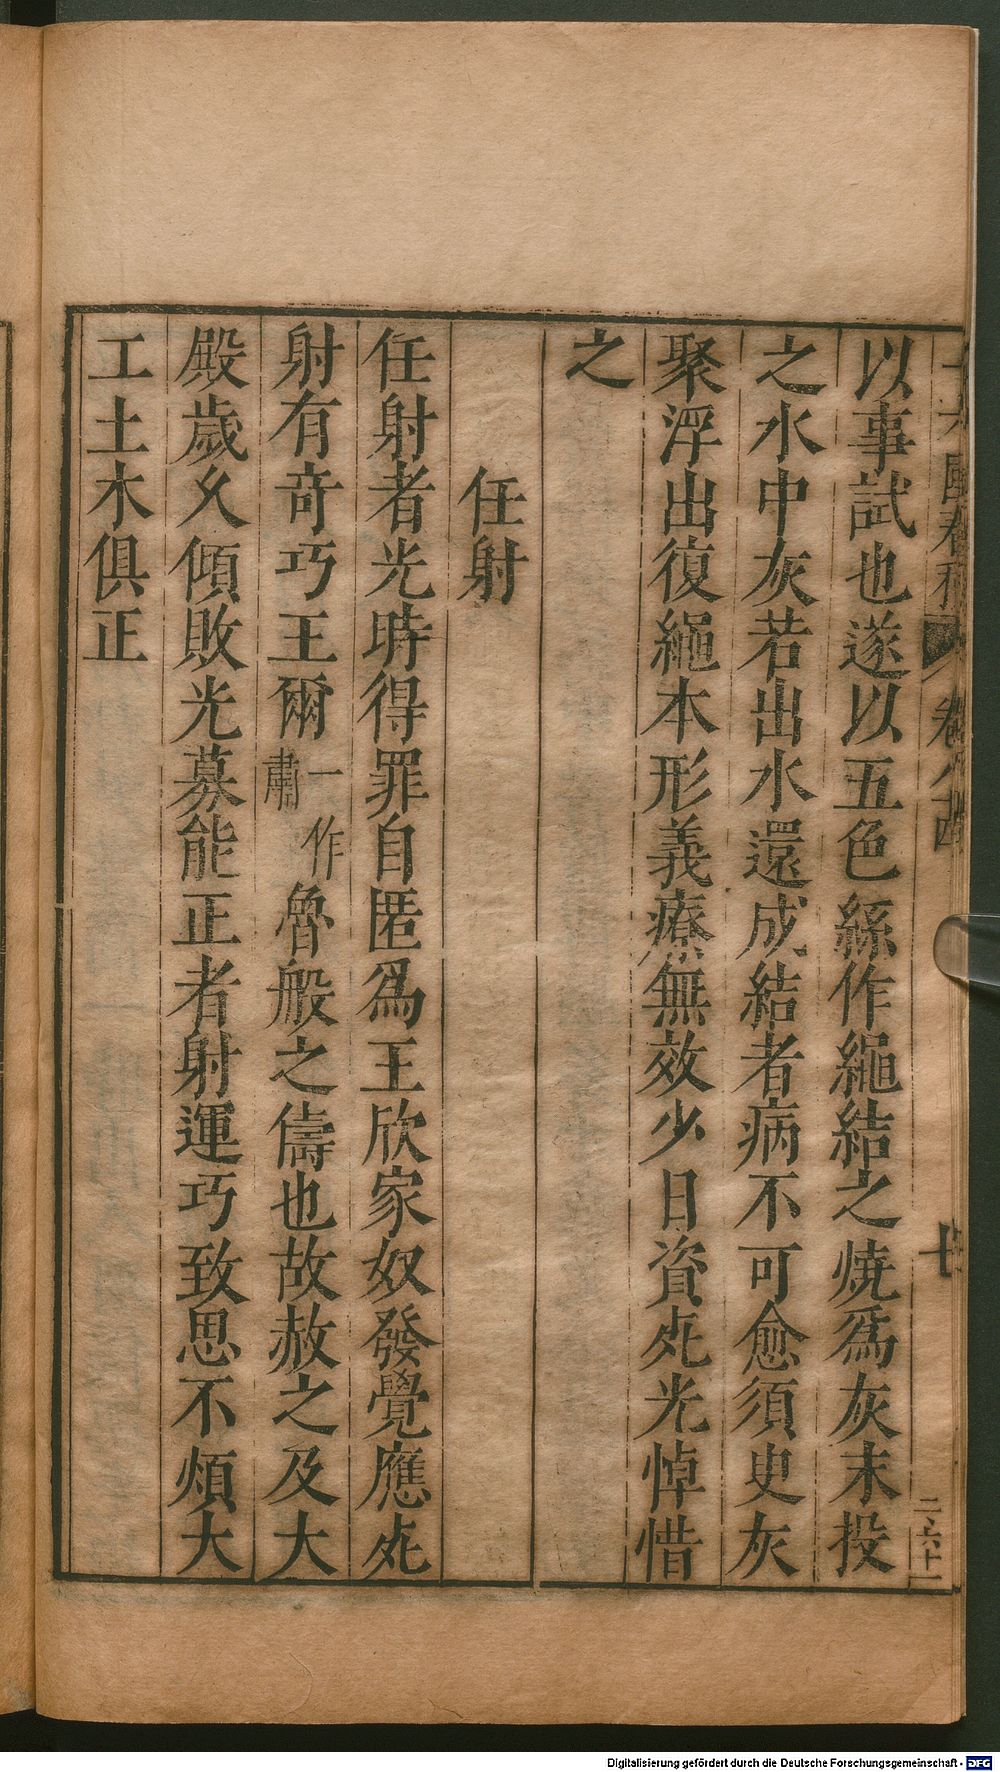 以事試也遂以五色絲作繩結之燒爲灰末投
之水中灰若出水還成結者病不可愈須臾灰
聚浮出復繩本形義療無效少日資死光悼惜
之
任射
任射者光時得罪自匿爲王欣家奴發覺應死
射有奇巧王爾一作肅魯般之儔也故赦之及大
殿歲久傾敗光募能正者射運巧致思不煩大
工土木俱正
Digitalisierung gefördert durch die Deutsche Forschungsgemeinschaft - DFG